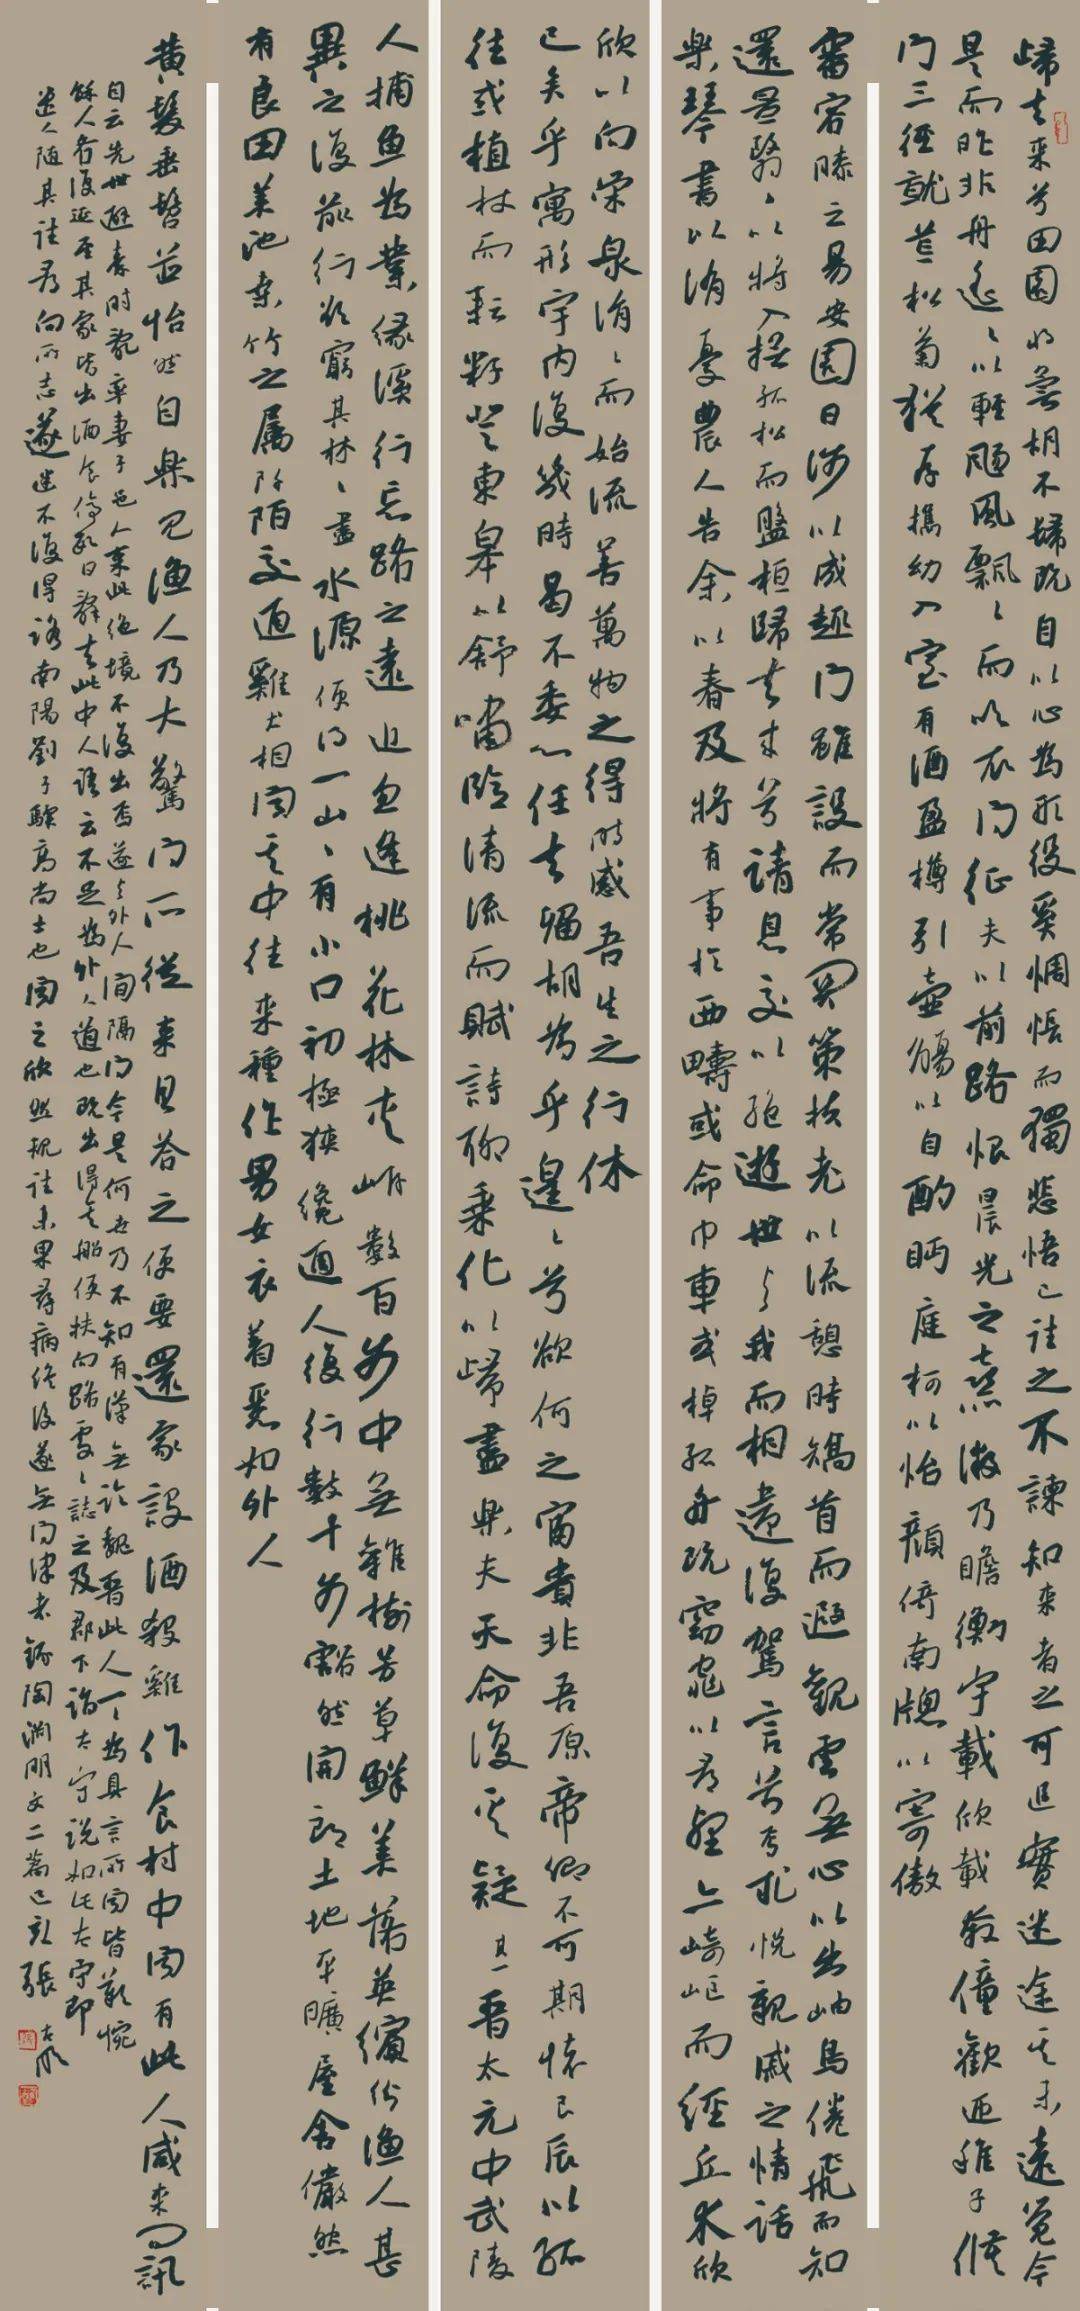 歸去来兮田園將蕪胡不歸既自以心為形役奚惆悵而獨悲悟已往之不諫知来者之可追實迷途其未遠覺今
是而昨非舟遙々以輕颺風飄々而吹衣問征夫以前路恨晨光之熹微乃瞻衡宇載欣載奔僮歡迎稚子候
門三徑就荒松菊猶存攜幼入室有酒盈樽引壺觴以自酌眄庭柯以怡顏倚南牕以寄傲
審容膝之易安園日涉以成趣門雖設而常關策扶老以流憩時矯首而遐觀雲無心以出岫鳥倦飛而知
還景翳々以將入撫孤松而盤桓歸去来兮請息交以絕遊世與我而相遺復駕言兮焉求悅親戚之情話
樂琴書以消憂農人告余以春及將有事於西疇或命巾車或棹孤舟既窈窕以尋壑亦崎嶇而經丘木欣
欣以向榮泉涓々而始流善萬物之得時感吾生之行休
已矣乎寓形宇内復幾時曷不委心任去留胡為乎遑々兮欲何之富貴非吾原帝鄉不可期懷良辰以孤
往或植杖而耘耔登東皋以舒嘯臨清流而賦詩聊乘化以歸盡樂夫天命復奚疑其一晉太元中武陵
人捕魚為業緣溪行忘路之遠近忽逢桃花林夾岸數百步中無雜樹芳草鮮美落英繽紛漁人甚
異之復前行欲窮其林々盡水源便得一山々有小口初極狹纔通人復行數十步豁然開朗土地平曠屋舍儼然
有良田美池桑竹之屬阡陌交通雞犬相聞其中往来種作男女衣著悉如外人
黄髮垂髫並怡然自樂見漁人乃大驚問所從来具答之便要還家設酒殺雞作食村中聞有此人咸来問訊
自云先世避秦時亂率妻子邑人来此絕境不復出焉遂與外人間隔問今是何世乃不知有漢無論魏晉此人一々為具言所聞皆歎惋
餘人各復延至其家皆出酒食停數日辭去此中人語云不足為外人道也既出得其船便扶向路處々誌之及郡下詣太守說如此太守即
遣人隨其往尋向所志遂迷不復得路南陽劉子驥高尚士也聞之欣然規往未果尋病終後遂無問津者錄陶淵明文二篇張